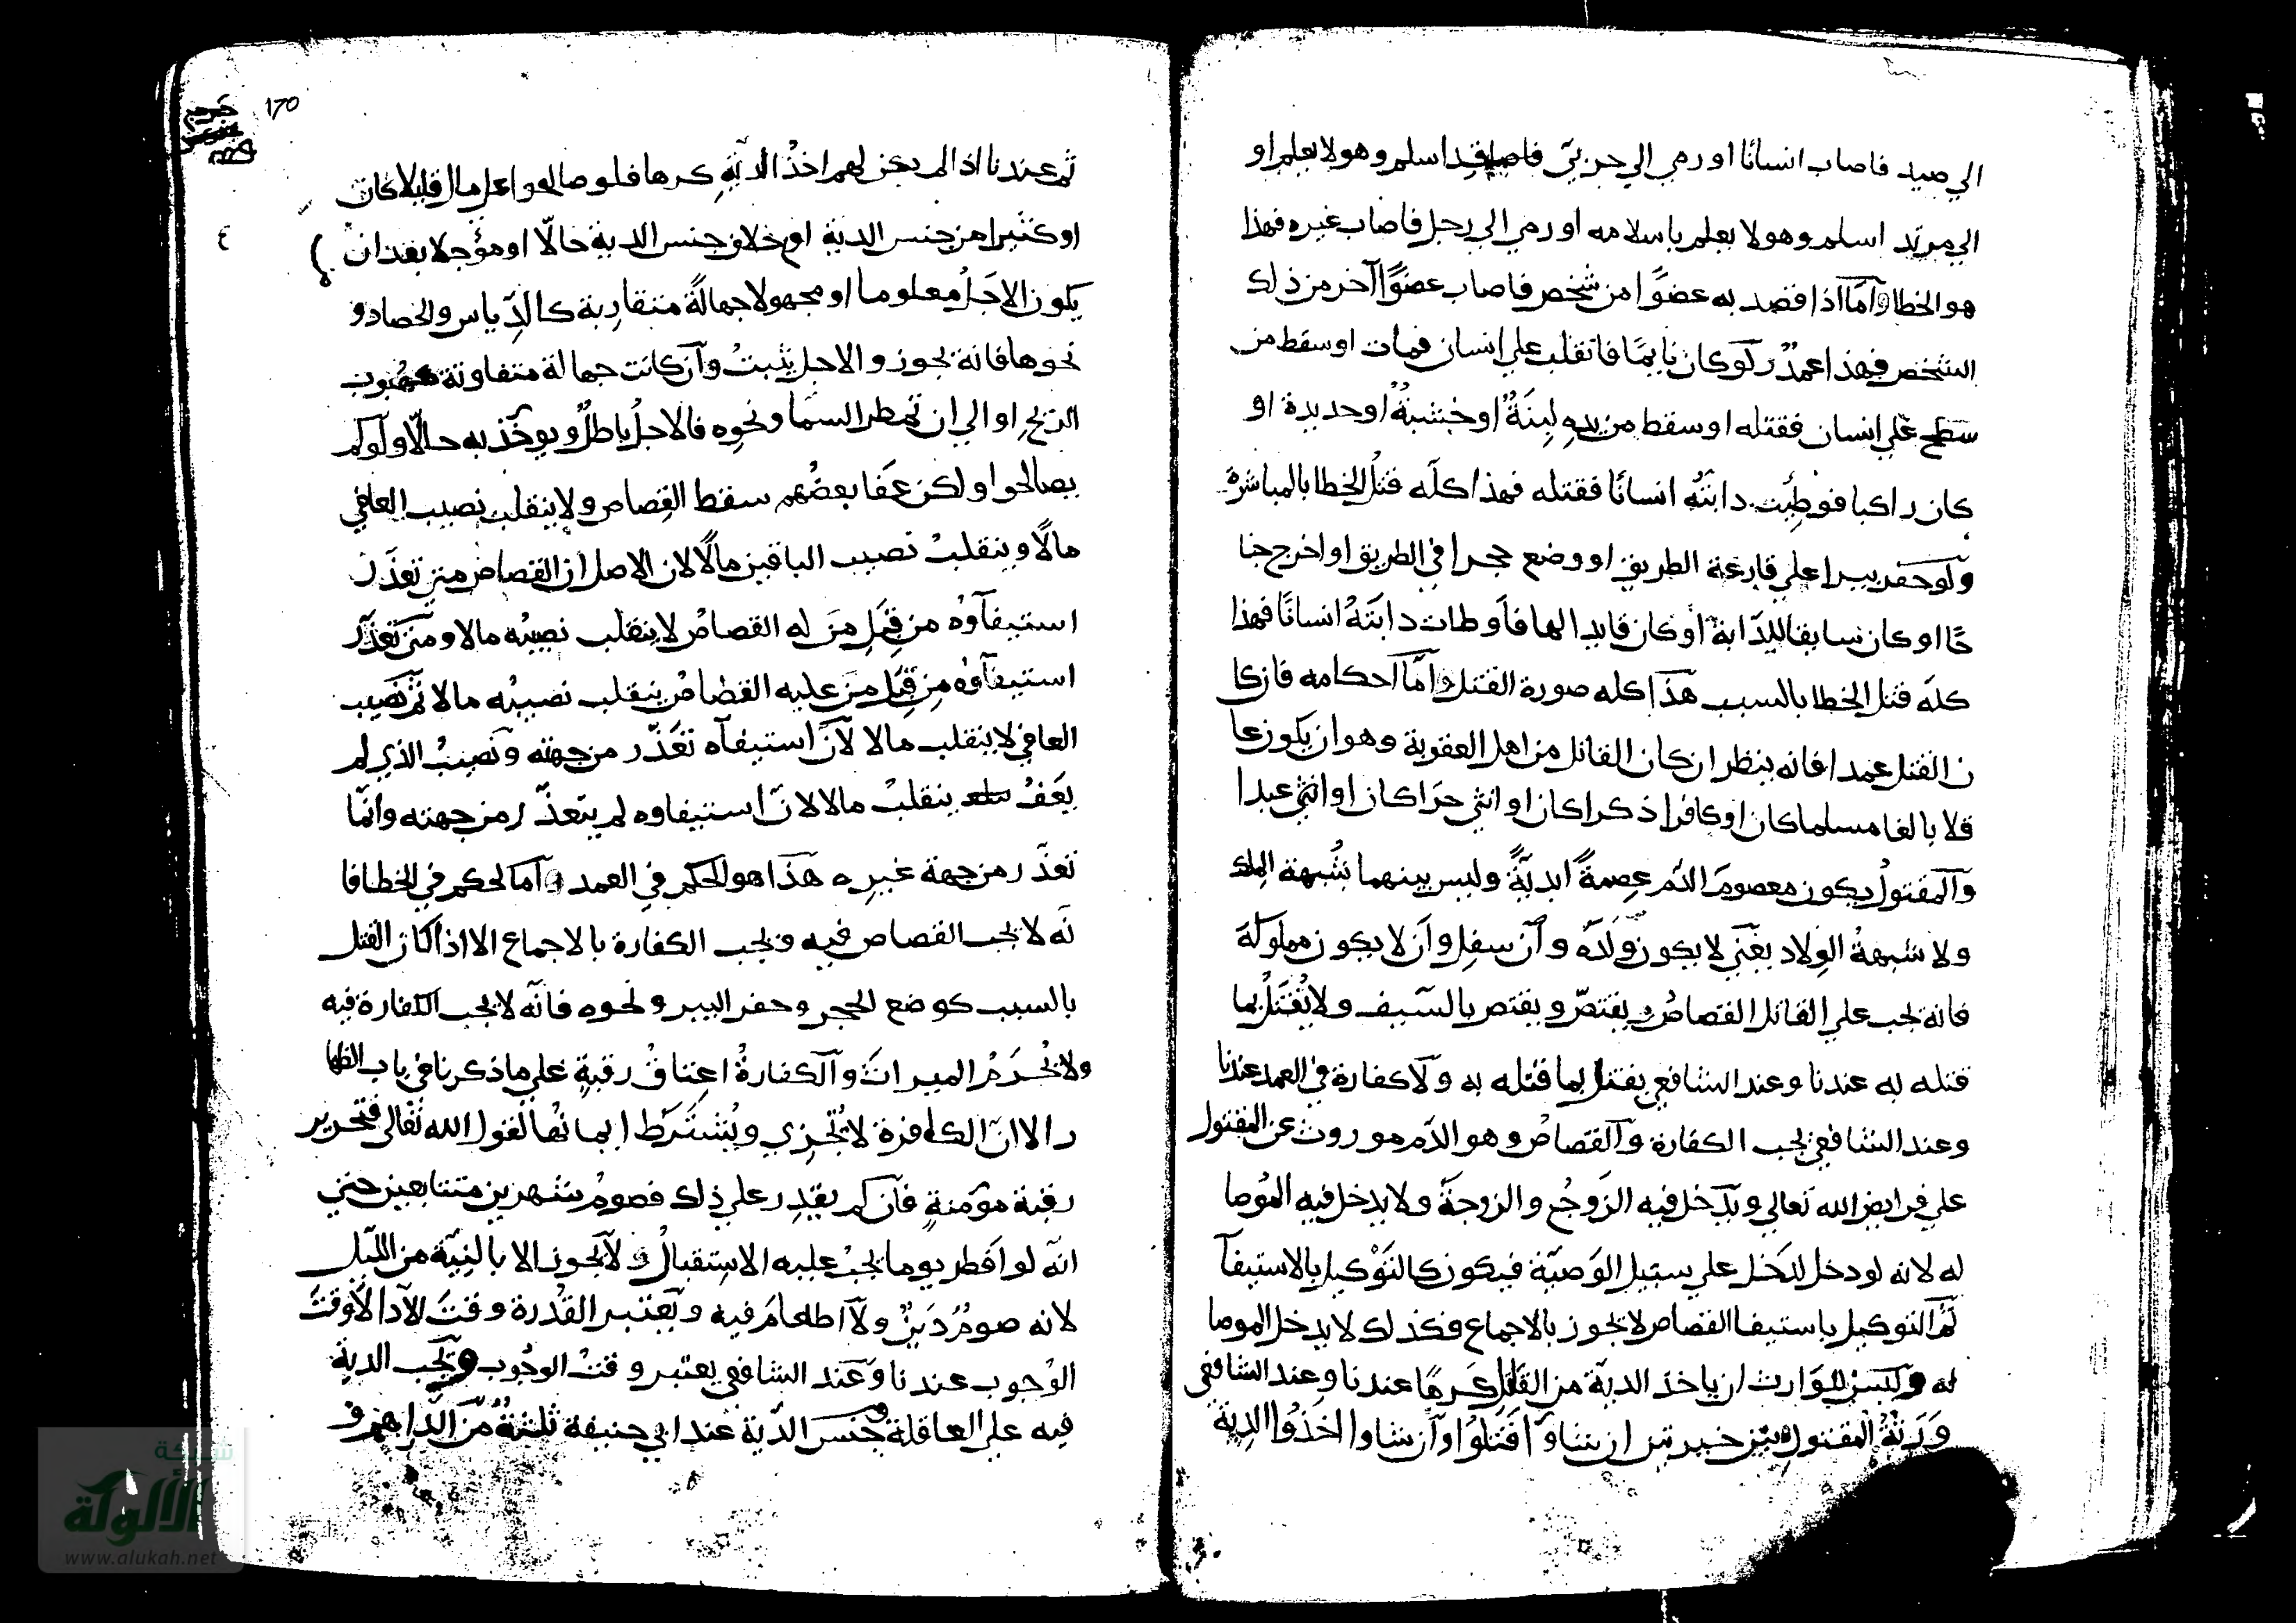 الي صيد فاصاب انسانا او رمي الي حربي فاصابه قد اسلم وهو لا يعلم او
الي مرتد اسلم وهو لا يعلم باسلامه او رمي الي رجل فاصاب غيره فهذا
هو الخطا وامّا اذا قصد به عضوًا من شخص فاصاب عضوًا آخر من ذلك
الشخص فهذا عمدٌ ولو كان نايمًا فانقلب علي انسان فمات او سقط من
سطح علي انسان فقتله او سقط من يده لبنةٌ او خشبةٌ او حديدة او
كان راكبا فوطِئت دابتُه انسانًا فقتله فهذا كله قتلُ الخطا بالمباشرة
ولو حفر بيرا علي قارعة الطريق او وضع حجرا في الطريق او اخرج جنا
حًا او كان سايقا للدّابة او كان قايدا لها فاوطات دابتهُ انسانًا فهذا
كله قتل الخطا بالسبب هذا كله صورة القتل وامّا احكامه فان كا
ن القتل عمدا فانه ينظر ان كان القاتل من اهل العقوبة وهو ان يكون عا
قلا بالغا مسلما كان او كافرا ذكرا كان او انثي حرّا كان او انثي عبدا
والمقتولُ يكون معصومَ الدّم عِصمةً ابديّةً وليس بينهما شُبهة الملك
ولا شبهةُ الوِلاد يعني لا يكون ولَدَه وان سفل وان لا يكون مملوكَهُ
فانه يجب علي القاتل القصاصُ ويقتصّ ويقتص بالسّيف ولا يُقتَلُ بما
قتله به عندنا وعند الشافعي يقتل بما قتله به ولا كفارة في العمد عندنا
وعند الشافعي يجب الكفارة والقصاصُ وهو الدّم موروث عن المقتول
علي فرايض الله تعالي ويدخل فيه الزوجُ والزوجةُ ولا يدخل فيه المُوصا
له لانه لو دخل لدخل علي سبيل الوَصيّة فيكون كالتّوكيل بالاستيفآ
ثمّ التوكيل باستيفا القصاص لا يجوز بالاجماع فكذلك لا يدخل الموصا
له وليس للوارث ان ياخذ الدية من القاتل كرهًا عندنا وعند الشافعي
وَرَثةُ المقتول بين خيرتين ان شاوٓا قتلوا وان شاوا اخذوا الدية
170
ثم عندنا اذا لم يجز لهم اخذُ الدّيةِ كرها فلو صالحوا علي مال قليلا كان
او كثيرا من جنس الدية او خلاف جنس الدية حالّا او مؤجلا بعد ان
يكون الاجلُ معلوما او مجهولا جهالةً متقاربة كالدّياس والحصاد و
نحوها فانه يجوز والاجل يثبتُ وان كانت جهالة متفاوتة كهبوب
الريح او الي ان تمطر السما ونحوه فالاجلُ باطلٌ ويوخذ به حالّا ولو لم
يصالحوا ولكن عَفا بعضُهم سقط القِصاص ولا ينقلب نصيب العافي
مالًا وينقلبُ نصيب الباقين مالًا لان الاصل ان القصاص متي تعذّر
استيفآوُه من قِبَلِ مَن له القصاصُ لا ينقلب نصيبُه مالا ومتي تعذّر
استيفآوُه مِن قِبَلِ مَن عليه القصاصُ ينقلب نصيبُه مالا ثمّ نصيب
العافي لا ينقلب مالا لانّ استيفآه تعَذّر من جهته ونصيبُ الذي لم
يَعفُ ينقلبُ مالا لانّ استيفاوه لم يتعذّر من جهته وانّما
تعذّر من جهة غيره هذا هو الحكم في العمد وامّا الحكم في الخطا فا
نّه لا يجب القصاص فيه ويجب الكفارة بالاجماع الا اذا كان القتل
بالسبب كوضع الحجر وحفر البير ونحوه فانّه لا يجب الكفارة فيه
ولا يُحرَمُ الميراث والكفارةُ اعتاقُ رقبةٍ علي ما ذكرنا في باب الظها
ر الا انّ الكافرة لا تُجزي ويُشترَط ايمانُها لقول الله تعالى فتحرير
رقبة مؤمنةٍ فان لم يقدِر علي ذلك فصومُ شهرين متتابعين حتي
انّه لو افطر يوما يجبُ عليه الاستقبالُ ولا يجوز الا بالنيّة من اللّيل
لانه صومُ دَينٌ ولا اطعامَ فيه ويعتبر القُدرة وقتَ الادا لا وقتَ
الوُجوب عندنا وعند الشافعي يعتبر وقتُ الوجُوب ويجب الدية
فيه علي العاقلة وجنس الدّية عند ابي حنيفة ثلثةٌ من الدّراهم و
شبكة
الألوكة
www.alukah.net